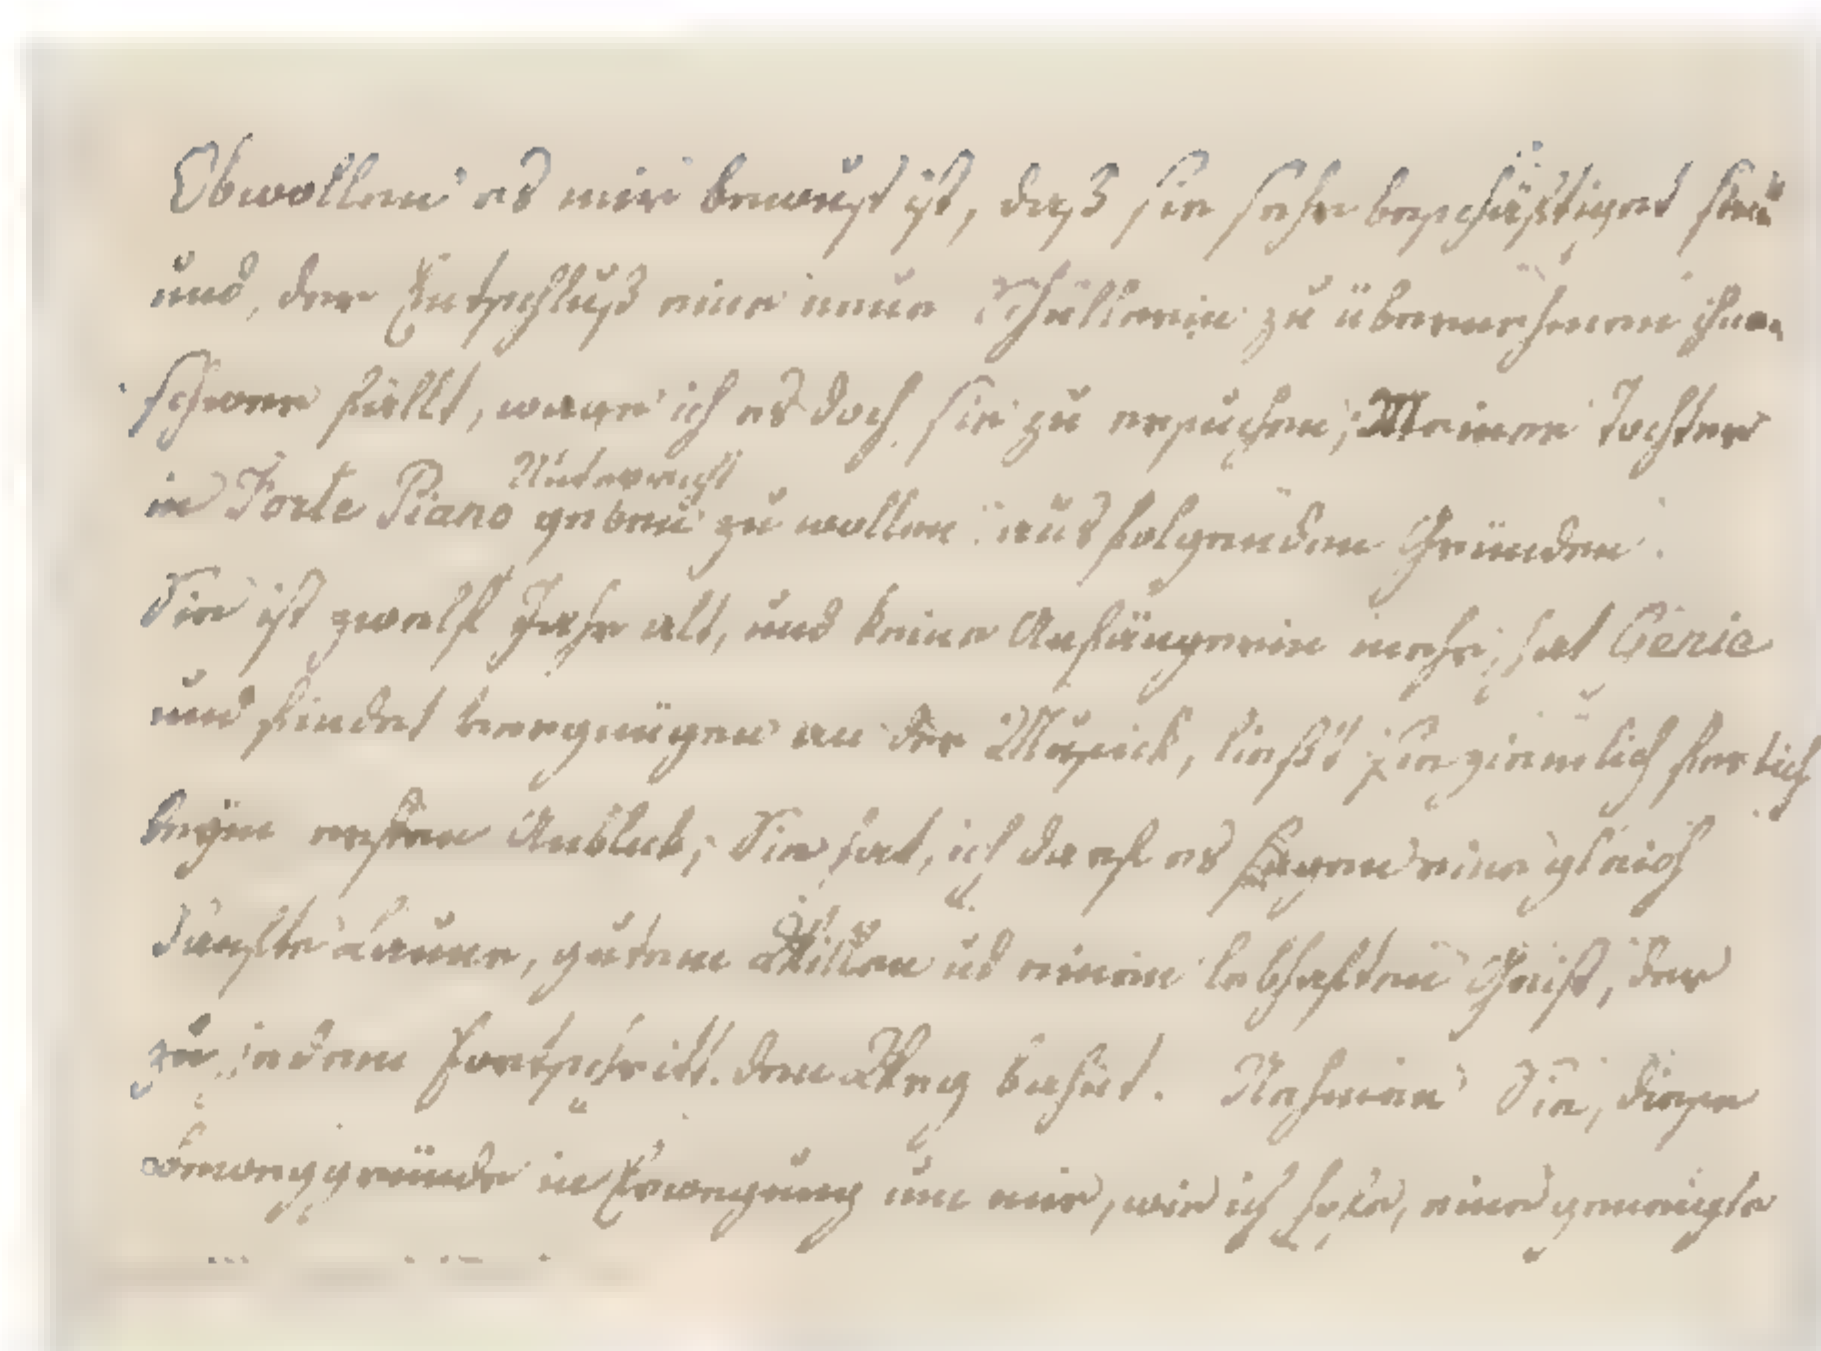 Obwollen es mir bewußt ist, daß sie sehr beschäftiget sein
und, der Entschluß eine neue Schüllerin zu übernehmen ihnen
schwer fällt, wage ich es doch sie zu ersuchen; Meiner Tochter
in Forte Piano Unterricht geben zu wollen aus folgenden Gründen.
Sie ist zwelf Jahr alt, und keine Anfängerin mehr; hat Genie
und findet vergnügen an der Musick, ließt sie ziemlich fertich
beÿm ersten Anblick; Sie hat, ich darf es sagen eine gleich
sanfte Laune, gutem Willen ud einem lebhaften Geist, der
zu jedem Fortschritt den Weg bahnt. Nehmen Sie, diese
beweggründe in Erwegung um mir, wie ich hofe, eine geneigte